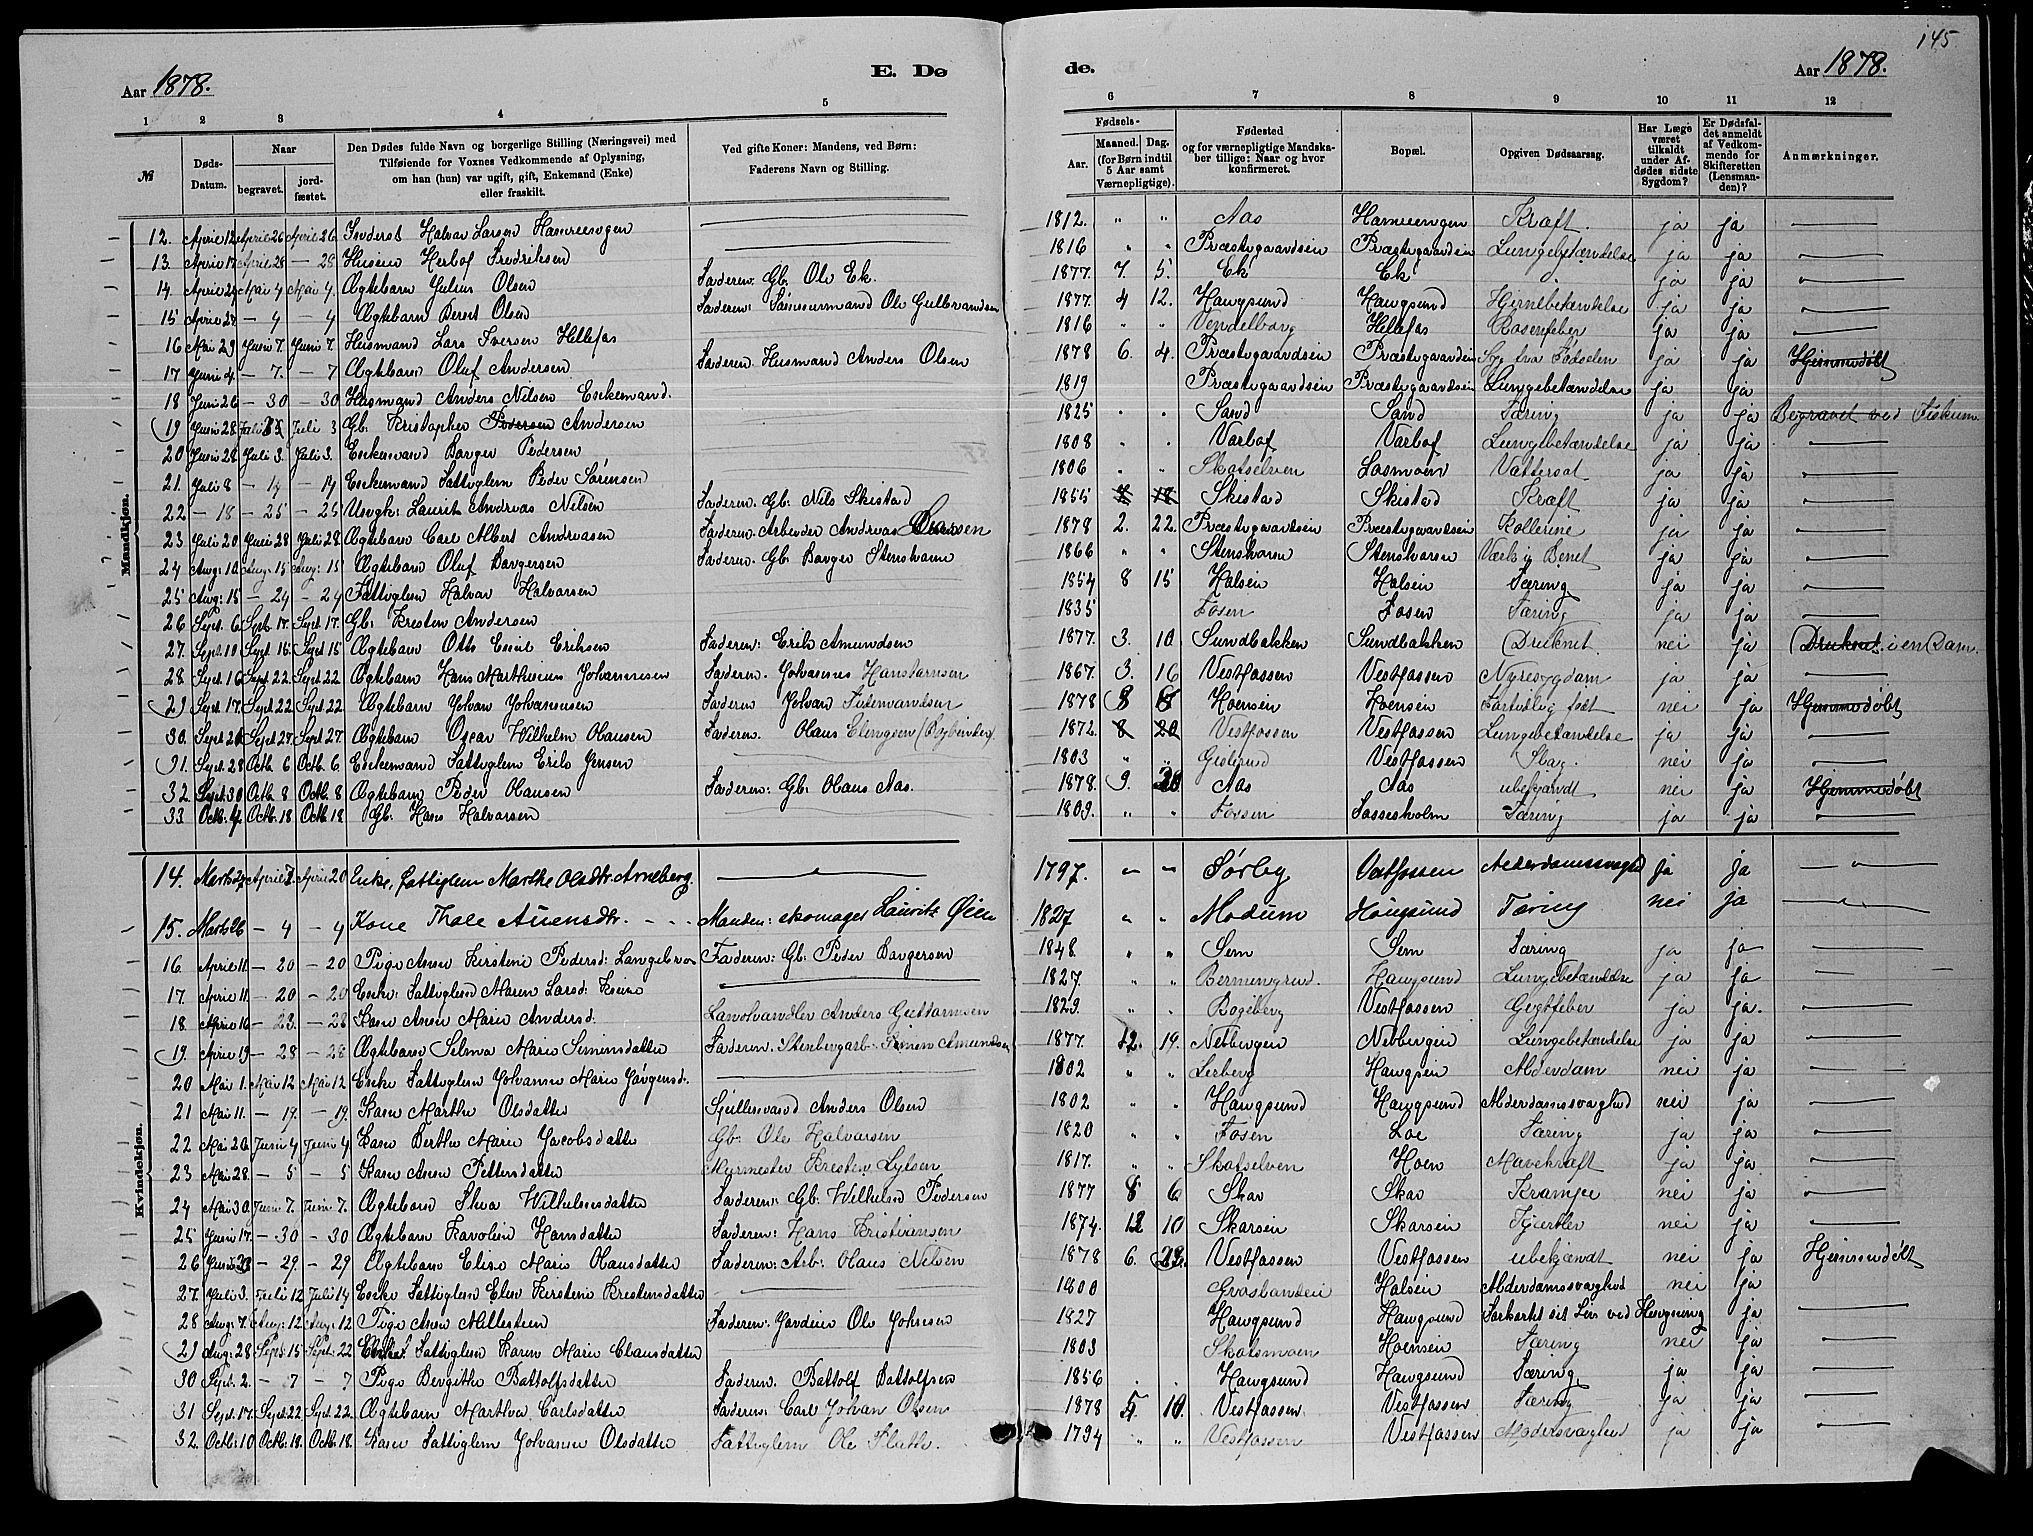 145
Aar 1878.
E. Dø
de.
Aar 1878.
1 2 3 4 5 6 7 8 9 10 11 12
№
Døds-Datum.
Naar
begravet.
jordfæstet.
Den Dødes fulde Navn og borgerlige Stilling (Næringsvei) med
Tilføiende for Voxnes Vedkommende af Oplysning,
om han (hun) var ugift, gift, Enkemand (Enke)
eller fraskilt.
Ved gifte Koner: Mandens, ved Børn:
Faderens Navn og Stilling.
Fødsels-
Aar.
Maaned. Dag.
(for Børn indtil
5 Aar samt
Værnepligtige).
Fødested
og for værnepligtige Mandska-
ber tillige: Naar og hvor
konfirmeret.
Bopæl.
Opgiven Dødsaarsag.
Har Læge
været
tilkaldt
under Af-
dødes sidste
Sygdom?
Er Dødsfal-
det anmeldt
af Vedkom-
mende for
Skifteretten
(Lensman-
den)?
Anmærkninger.
Mandkjøn.
12. April 12 April 26 April 26 Inderst Halvor Larsen 1812. " " Aas Kræft. ja ja
13. April 17 April 28 — 28 Fredriksen 1816 " " Præstegaardseien Præstegaardseien Lungebetændelse ja ja
14. April 24 Mai 4 Mai 4. Ægtebarn Julius Olsen Faderen: Gb. Ole Ek. 1877. 7. 5. Ek Ek ja ja
15 April 28 — 4 — 4 Ægtebarn Bernt Olsen Faderen: Ole Gulbrandsen 1877. 4 12. Haugsund Haugsund Hjernebetændelse ja ja
16 Mai 29 Juni 7. Juni 7. Husmand Lars Iversen Hellefos 1816 " " Vendelborg Hellefos Rosenfeber ja ja
17 Juni 4. — 7. — 7 Ægtebarn Oluf Andersen Faderen: Husmand Anders Olsen 1878 6. 4. Præstegaardseien Præstegaardseien Syg fra Fødselen ja ja Hjemmedøbt
18 Juni 26 — 30 — 30 Husmand Anders Nilsen Enkemand. 1819 Præstegaardseien Præstegaardseien Lungebetændelse ja ja
19 Juni 28 Juli 3 Juli 3 Gb. Kristopher Pedersen Andersen 1825 Sand Sand Tæring ja ja Begravet ved Fiskum
20 Juni 28 Juli 3. Juli 3. Enkemand Borger Pedersen 1808 Varlof Varlof Lungebetændelse ja ja
21. Juli 8 — 14 — 14 Enkemand Fattiglem Peder Sørensen 1806 " " Skotselven Losmoen Vattersot ja ja
22 — 18 — 25 — 25 Ungk: Laurits Andreas Nilsen Faderen: Gb: Nils Skistad 1855 8 18 Skistad Skistad Kræft ja ja
23 Juli 20 Juli 28 Juli 28 Ægtebarn Carl Albert Andreasen Faderen: Arbeider Andreas 1878 2. 22. Præstegaardseien Præstegaardseien Kollerine ja ja
24 Aug: 10 Aug: 15 Aug: 15 Ægtebarn Oluf Borgersen Faderen: Gb. Borger Stenshorn 1866 " " Stenshorn Stenshorn Værk i Benet ja ja
25 Aug: 15 — 24 — 24 Fattiglem Halvor Halvorsen 1854 8 15 Halsen Halsen Tæring ja ja
26 Sept. 6 Sept. 17. Sept. 17. Gb: Kresten Andersen 1835 Fosen Fosen Tæring ja ja
27. Sept. 10 Sept 15 Sept 15 Ægtebarn Otto Emil Eriksen Faderen: Erik Amundsen 1877. 3. 10 Sundbakken Sundbakken Druknet. nei ja Druknet i en Dam.
28 Sept. 16 Sept. 22. Sept. 22 Ægtebarn Hans Marthinius Johannesen Faderen: Johannes 1867. 3. 16 Vestfossen Vestfossen Nyresygdom ja ja
29 Sept. 17 Sept. 22 Sept. 22 Ægtebarn Johan Johannesen Faderen Johan 1878 8 Hoensen Hoensen Fortidlig født nei ja Hjemmedøbt
30. Sept 20 Sept 27. Sept 27. Ægtebarn Oscar Wilhelm Hansen Faderen. Hans Elingsen 1872. 8 20 Vestfossen Vestfossen Lungebetændelse ja ja
31. Sept. 28 Octb. 6 Octb. 6 Enkemand Fattiglem Erik Jensen 1803 " " Vestfossen Slag. nei ja
32. Sept. 30 Octb. 8 Octb. 8 Ægtebarn Peder Hansen Faderen: Gb: Hans Aas. 1878. 9. 20 Aas Aas ubekjændt nei ja Hjemmedøbt
33. Octb. 4. Octb. 18 Octb. 18 Gb: Hans Halvorsen 1809. " " Fossen Sassesholm Tæring ja ja
Kvindekjøn.
14. Marts 27 April 7. April 20 Enke, fattiglem Marthe Olsdtr. Arneberg. 1797. " " Sørby Vestfossen Alderdomssvaghed ja ja
15. Marts 26 — 4 — 4 Kone Thale Auensdtr. Manden: skomager Lauritz Øien 1827 " " Modum Hougsund Tæring nei ja
16 April 11. — 20 — 20 Pige Anne Kirstine Pedersd: Langebro Faderen: Gb: Peder Borgersen 1848. " " Sem Sem Tæring ja ja
17. April 11. — 20 — 20 Enke: Fattiglem Maren Larsd: 1827. " " Haugsund Lungebetændelse ja ja
18. April 16 — 23. — 28 Kone Anne Marie Andersd: Landhandler Anders Guttormsen 1829. " " Bogeberg Vestfossen Gigtfeber ja ja.
19. April 19 — 28 — 28 Ægtebarn Selma Marie Simensdatter Faderen: Simen Amundsen 1877. 12. 19. Nedbergen Nedbergen Lungebetændelse ja ja
20 Mai 1. Mai 12 Mai 12 Enke Fattiglem Johanne Marie Jørgensd. 1802 " " Lerberg Haugsein Alderdom nei ja
21 Mai 11. — 19. — 19. Kone Marthe Olsdatter Anders Olsen 1802 " " Haugsund Haugsund Alderdomssvaghed nei ja
22 Mai 26 Juni 4 Juni 4 Kone Berthe Marie Jacobsdatter Gb: Ole Halvorsen 1820 " " Fosen Loe Tæring ja ja
23 Mai 28. — 5 — 5 Kone Anne Pettersdatter Murmester Kresten Lytsen 1817. " " Skotselven Hoen Mavekræft ja ja
24 Mai 30. Juni 7. Juni 7. Ægtebarn Thea Wilhelmsdatter Faderen: Gb: Wilhelm Pedersen 1877 8 6 Skar Skar Krampe nei ja
25 Juni 17. — 30 — 30 Ægtebarn Karoline Hansdatter Faderen: Hans Kristiansen 1874. 12 10 Skarsein Skarsein nei ja
26 Juni 23 — 29. — 29 Ægtebarn Elise Marie Hansdatter Faderen: Arb: Hans Nilsen 1878 6. 22. Vestfossen Vestfossen ubekjændt nei ja Hjemmedøbt
27. Juli 3. Juli 12 Juli 14 Enke Fattiglem Elen Kirstine Kristensdatter 1800 Halsen Alderdomssvaghed nei ja
28 Aug: 7. Aug: 12 Aug: 12 Pige Anne Millesteen Faderen: Ole Johnsen 1827 Haugsund Haugsund Forkortet sit Liv ved Hængning ja
29 Aug: 28 Sept: 15 Sept: 22 Enke Fattiglem Karen Marie Clausdatter 1803 Skotsmoen Hoensen Tæring nei ja
30 Sept. 2. — 7 — 7 Pige Bergithe Battolfsdatter Faderen. Battolf Battolfsen 1856 Haugsund Haugsund Tæring ja ja
31 Sept. 17. Sept. 22 Sept. 22. Ægtebarn Marthea Carlsdatter Faderen: Carl Johan Olsen 1878 5. 10. Vestfossen Vestfossen Tæring ja ja
32. Octb: 10 Octb. 18. Octb. 18. Kone Fattiglem Johanne Olsdatter Fattiglem Ole Flathe. 1794 " " Vestfossen Vestfossen ja ja